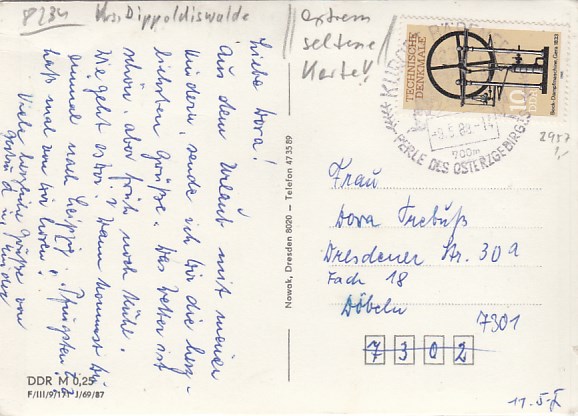 8234 Krs. Dippoldiswalde
extrem
seltene
Karte!
TECHNISCHE
DENKMALE
Bock-Dampfmaschine, Gera 1833
10
DDR
KURORT
700m
PERLE DES OSTERZGEBIRGES
2957
1,-
Liebe Dora!
Aus dem Urlaub mit meinen
Kindern, sende ich Dir die herz-
liebsten Grüße. Das Wetter ist
schön, aber früh noch kühl.
Wie geht es Dir? Wann kommst Du
einmal nach Leipzig. Pfingsten?
Laß mal von Dir hören.
Viele herzliche Grüße von
u. Kinder
Nowak, Dresden 8020 – Telefon 473589
Frau
Dora Trebuß
Dresdener Str. 30a
Fach 18
Döbeln
7301
7302
DDR M 0,25
F/III/9/171 J/69/87
11.5.